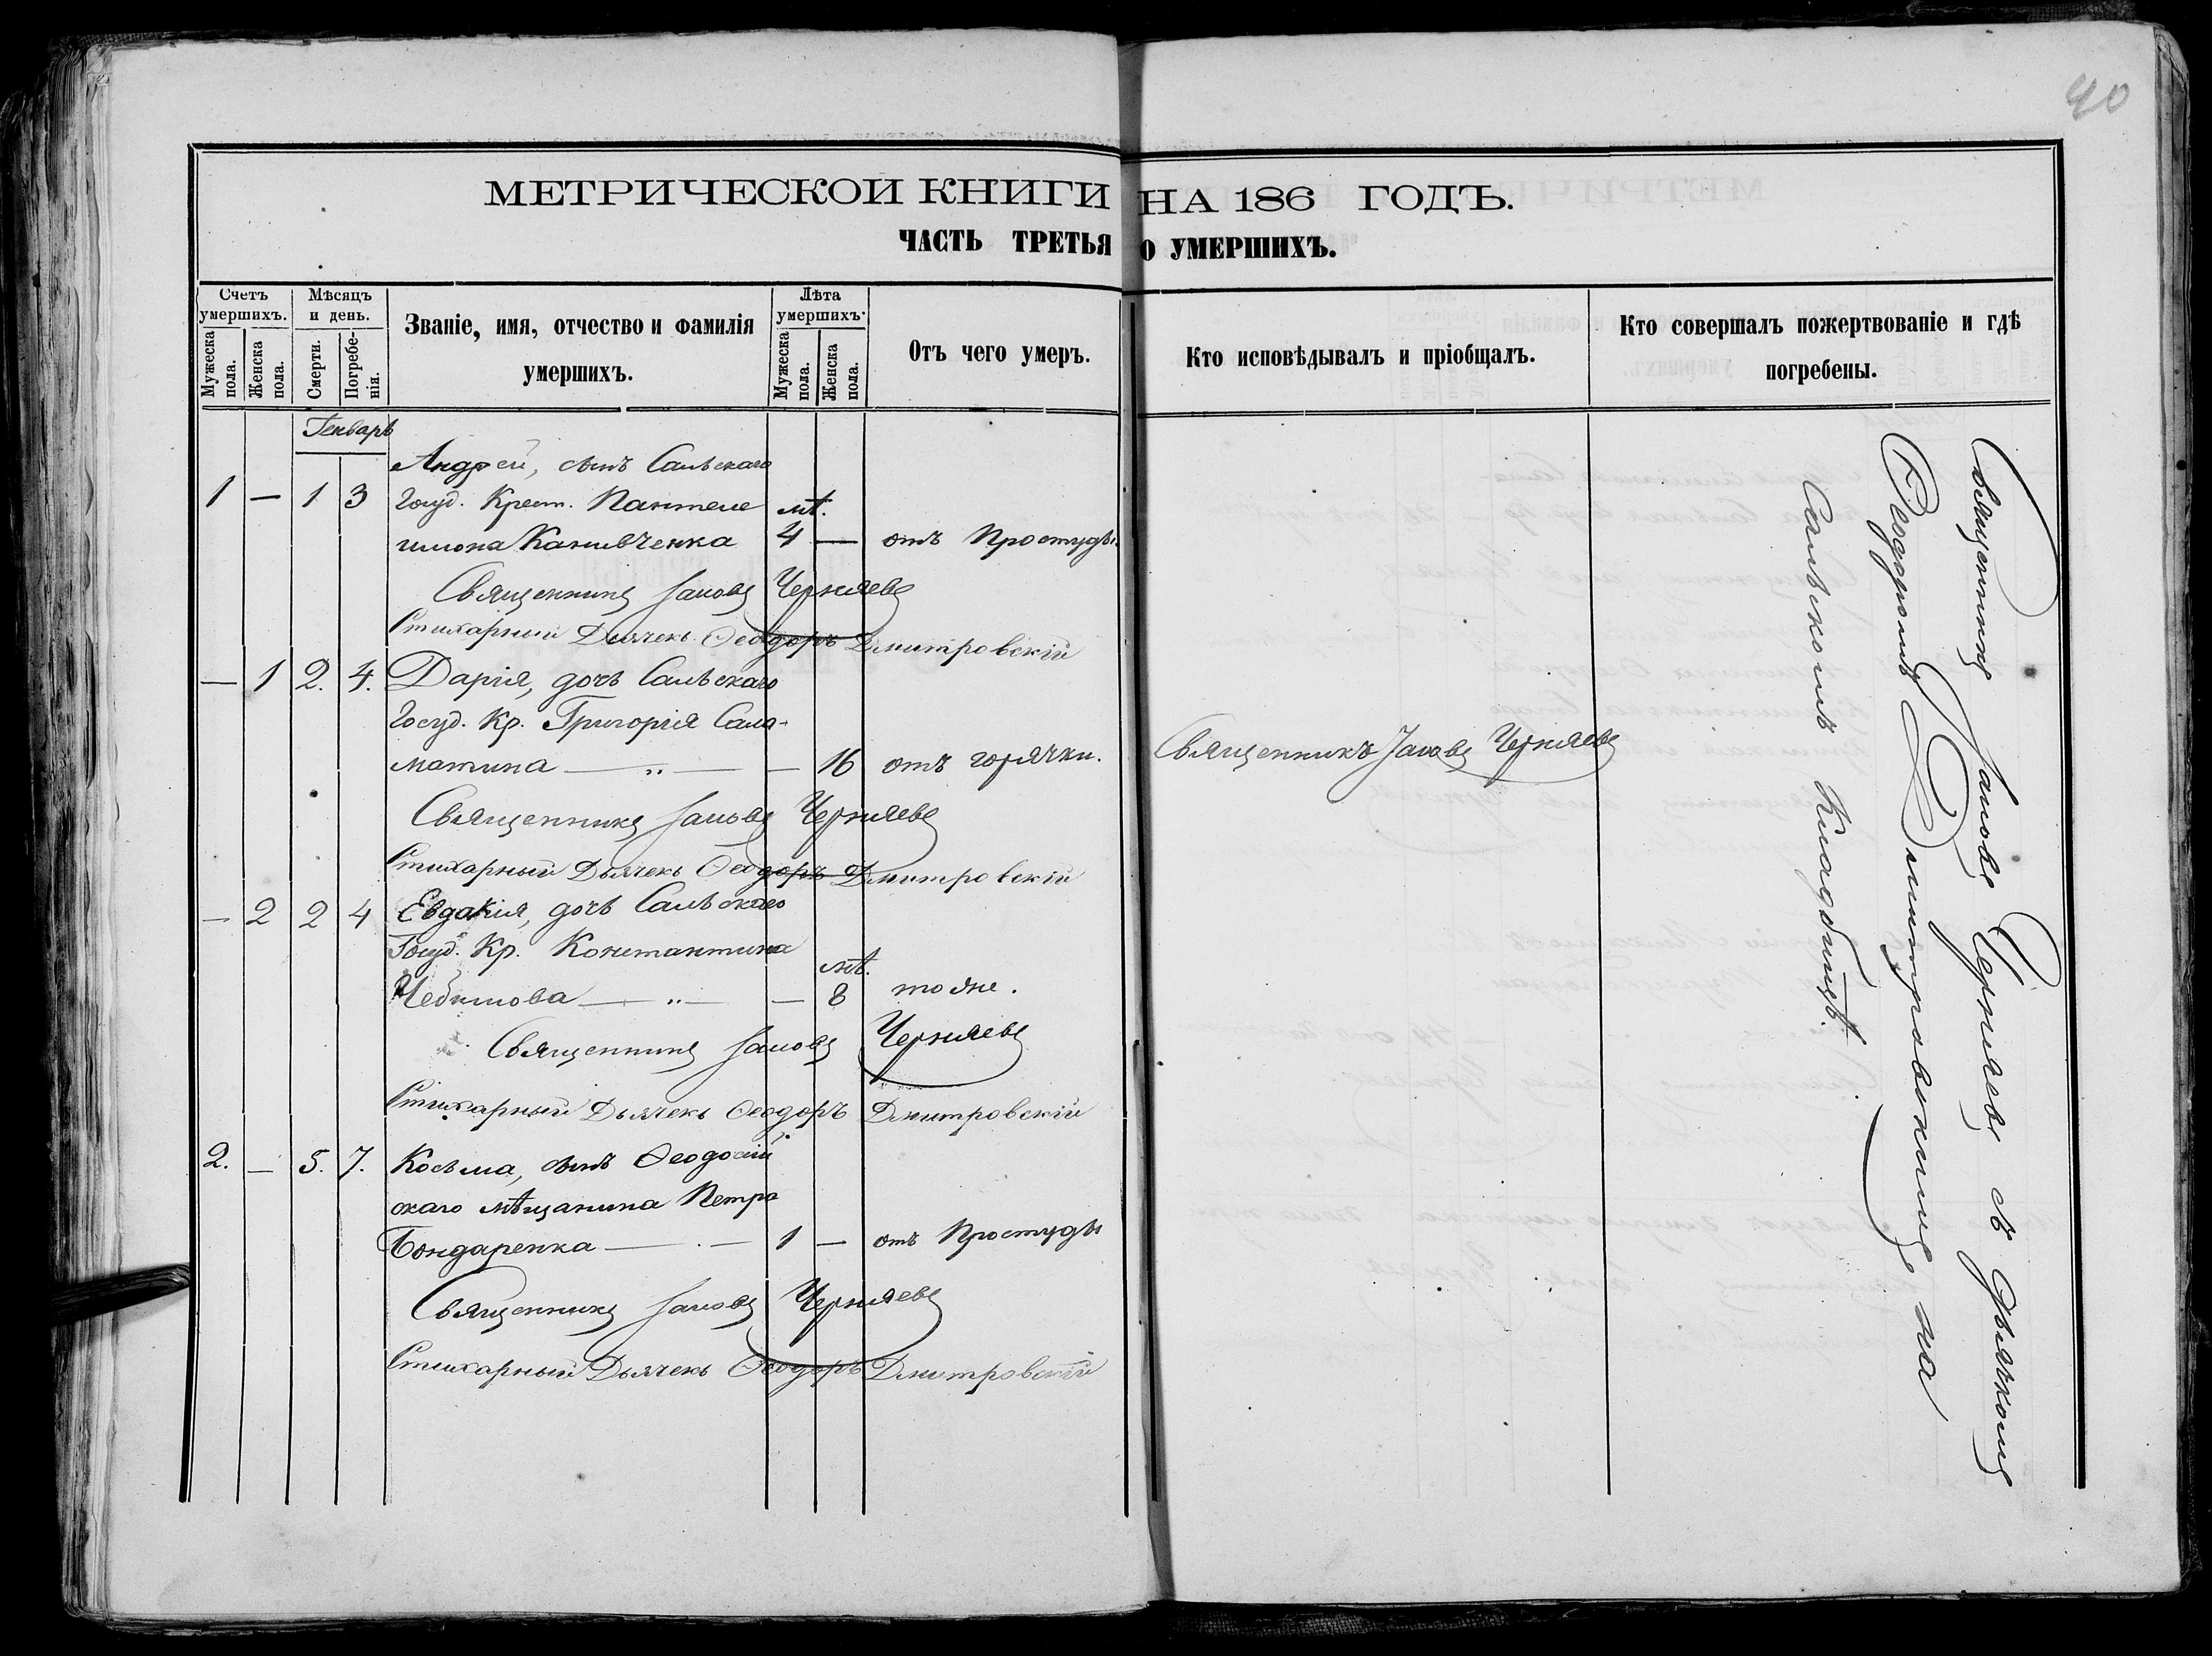 40
МЕТРИЧЕСКОЙ КНИГИ НА 186 ГОДЪ.
ЧАСТЬ ТРЕТЬЯ О УМЕРШИХЪ.
Счетъ умершихъ.
Мужеска пола.
Женска пола.
Мѣсяцъ и день.
Смерти.
Погребе-нія.
Званіе, имя, отчество и фамилія
умершихъ.
Лѣта умершихъ.
Мужеска пола.
Женска пола.
Отъ чего умеръ.
Кто исповѣдывалъ и пріобщалъ.
Кто совершалъ пожертвованіе и гдѣ
погребены.
Генварь
Андрей, сынъ
1 — 1 3 Госуд. Крест. Пантеле лѣт.
имона Канивченка 4 — отъ Простуды
Священникъ Іаковъ Черняевъ
Стихарный Дьячекъ Ѳеодоръ Дмитровскій
— 1 2. 4. Дарія, дочь
Госуд. Кр. Григорія Сала-
матина — „ — — 16 отъ горячки.
Священникъ Іаковъ Черняевъ
Священникъ Іаковъ Черняевъ
Стихарный Дьячекъ Ѳеодоръ Дмитровскій
— 2 2 4 Евдакія, дочь
Госуд. Кр. Константина лѣт.
— „ — — 8 тоже.
Священникъ Іаковъ Черняевъ
Стихарный Дьячекъ Ѳеодоръ Дмитровскій
2. — 5. 7. Косьма, сынъ Ѳеодосій
скаго мѣщанина Петра
Бондаренка — . — 1 — отъ Простуды
Священникъ Іаковъ Черняевъ
Стихарный Дьячекъ Ѳеодоръ Дмитровскій
Священникъ Іаковъ Черняевъ съ дьячкомъ
Ѳеодоромъ Дмитровскимъ на
Кладбищѣ.